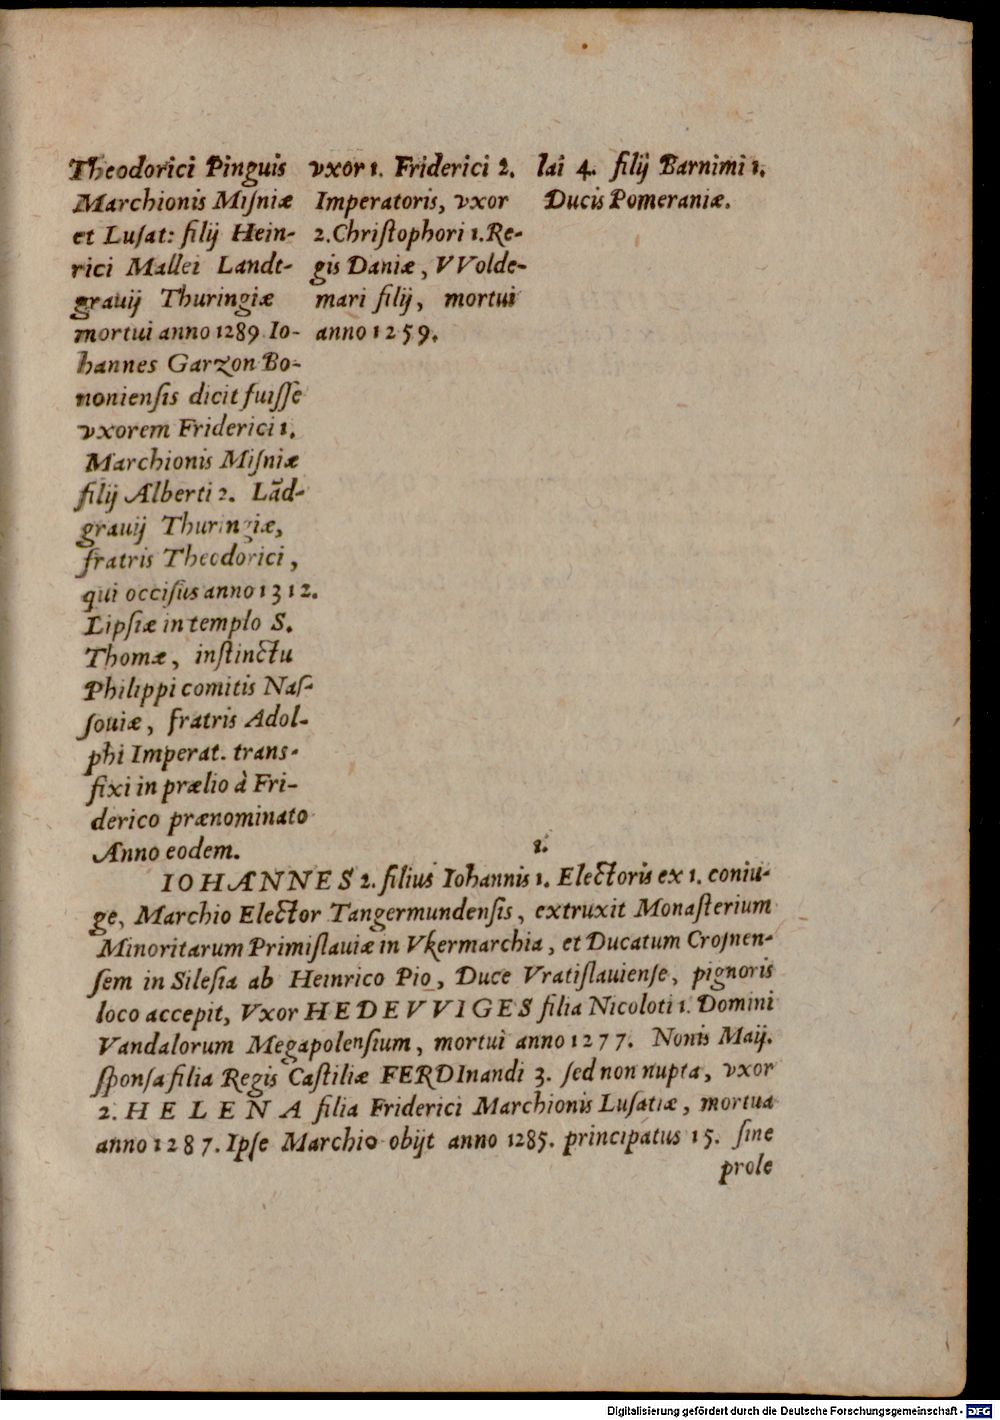 Theodorici Pinguis
Marchionis Miſniæ
et Luſat: filij Hein-
rici Mallei Landt-
grauij Thuringiæ
mortui anno 1289. Io-
hannes Garzon Bo-
nonienſis dicit fuiſſe
vxorem Friderici 1.
Marchionis Miſniæ
filij Alberti 2. Lād-
grauij Thuringiæ,
fratris Theodorici,
qui occiſus anno 1312.
Lipſiæ in templo S.
Thomæ, inſtinctu
Philippi comitis Naſ-
ſouiæ, fratris Adol-
phi Imperat. trans-
fixi in prælio à Fri-
derico prænominato
Anno eodem.
vxor 1. Friderici 2.
Imperatoris, vxor
2. Chriſtophori 1. Re-
gis Daniæ, VVolde-
mari filij, mortui
anno 1259.
lai 4. filij Barnimi 1.
Ducis Pomeraniæ.
1.
IOHANNES 2. filius Iohannis 1. Electoris ex 1. coniu-
ge, Marchio Elector Tangermundenſis, extruxit Monaſterium
Minoritarum Primiſlauiæ in Vkermarchia, et Ducatum Croſnen-
ſem in Sileſia ab Heinrico Pio, Duce Vratiſlauienſe, pignoris
loco accepit, Vxor HEDEVVIGES filia Nicoloti 1. Domini
Vandalorum Megapolenſium, mortui anno 1277. Nonis Maij.
ſponſa filia Regis Caſtiliæ FERDInandi 3. ſed non nupta, vxor
2. HELENA filia Friderici Marchionis Luſatiæ, mortua
anno 1287. Ipſe Marchio obijt anno 1285. principatus 15. ſine
prole
Digitalisierung gefördert durch die Deutsche Forschungsgemeinschaft - DFG